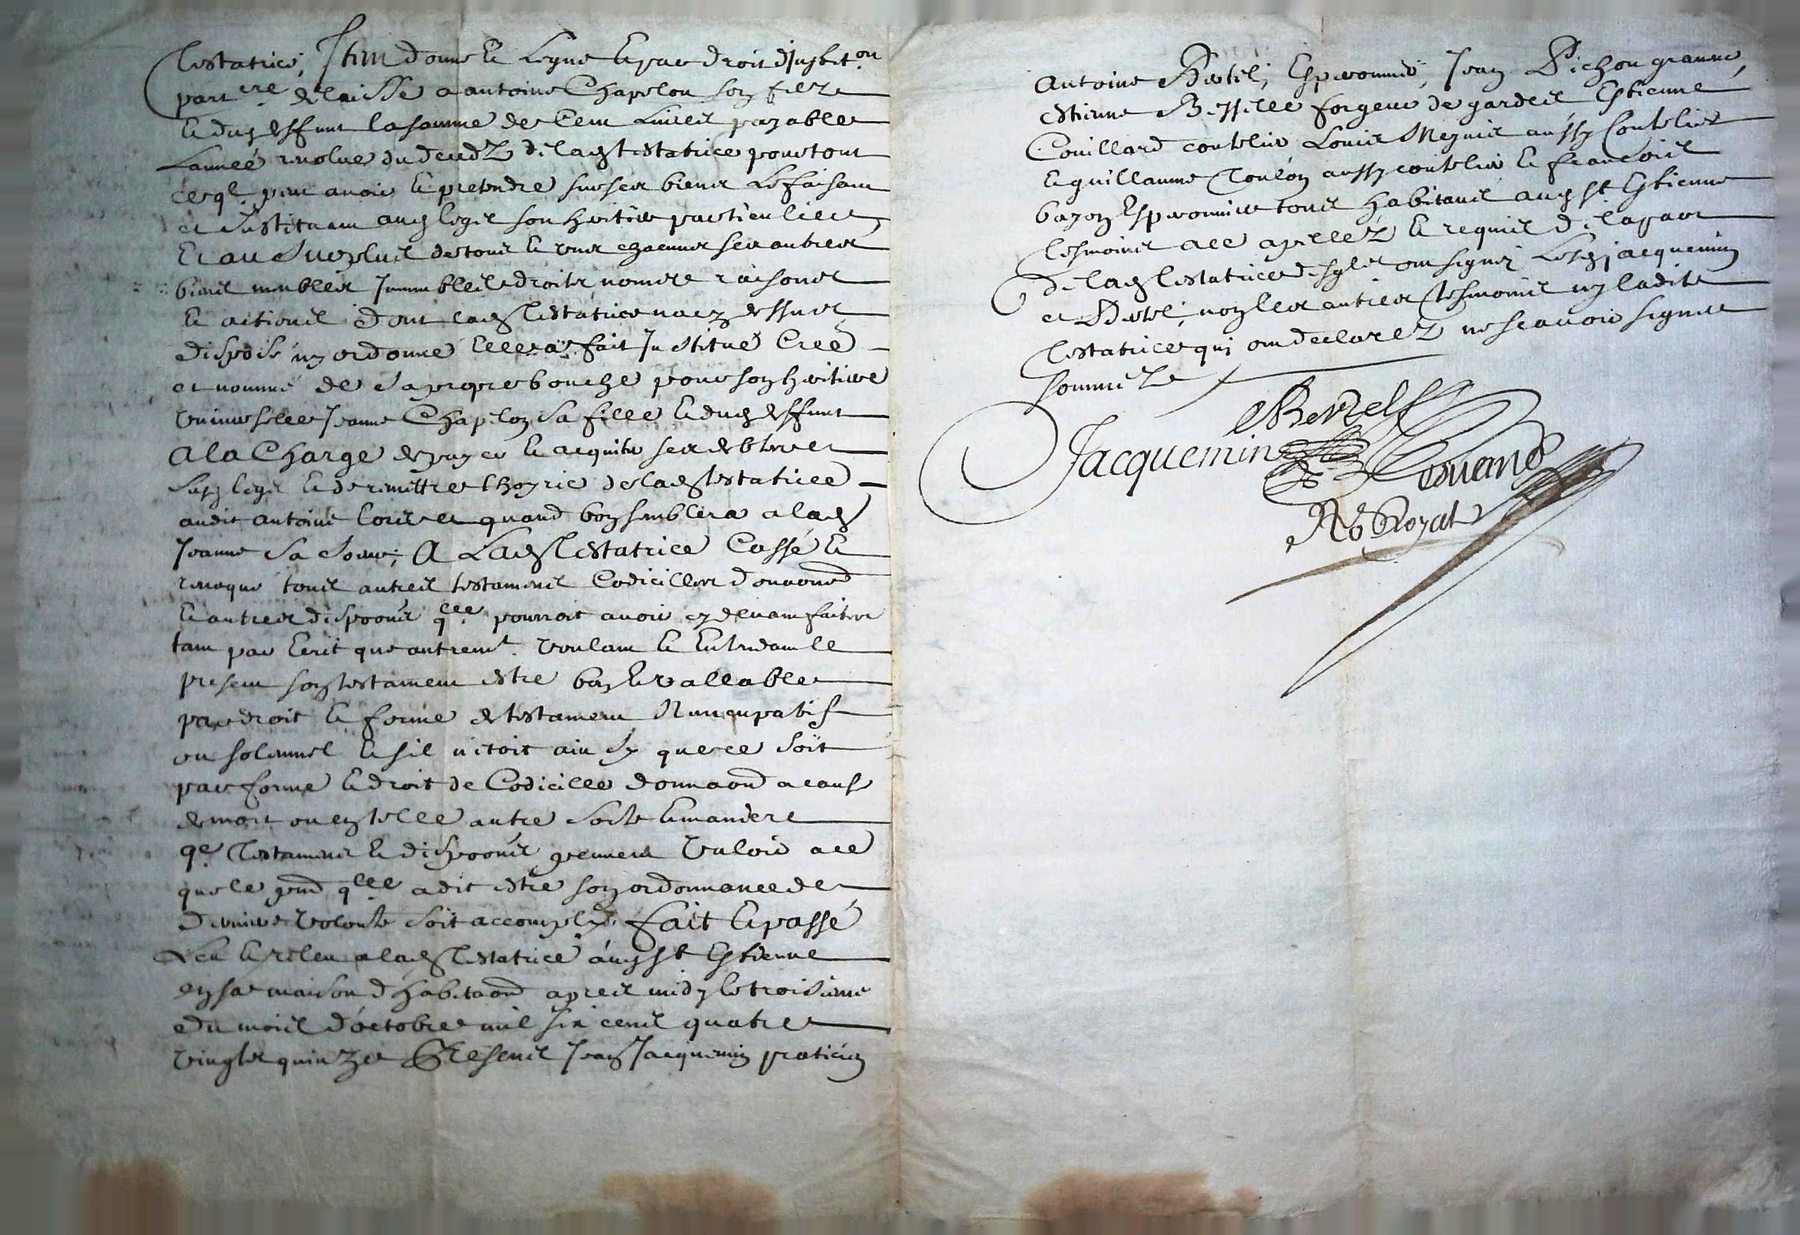 testatrice, Item donne et legue et par droit d'Instit.on
part.ere delaisse a antoine Chapelon son filz
et dud deffunt la somme de Cent Livres payable
L'année revolue du decedz de lad testatrice pour tout
ce ql peut avoir et pretendre sur ses biens Le faisant
et Instituant aud legs son heritier particulier
Et au surplus de tous et uns chacuns ses autres
biens meubles Immeubles droits noms raisons
et actions dont lad testatrice na cy dessus
disposé ny ordonné Elle a fait Institué Creé
et nommé de sa propre bouche pour son heritiere
universelle Jeanne Chapelon sa fille et dud deffunt
A la Charge de payer et acquiter ses debtes et
susd legs et de remettre l'hoyrie de lad testatrice
audit antoine lors et quand bon semblera a lad
Jeanne sa soeur, A Lad testatrice Cassé et
revoqué tous autres testamens Codicilles donaons
et autres dispoons q.lle pourroit avoir cy devant faites
tant par Ecrit que autremt. voulant et Entendant le
present son testament estre bon et vallable
par droit et forme de testament Nuncupatif
ou solemnel et sil n'etoit ainsy que ce soit
par forme et droit de Codicille donnaon a cause
de mort ou en telle autre sorte et maniere
q.e testamens et dispoons peuvent valoir a ce
que le pnt q.lle a dit estre son ordonnance de
derniere volonté soit accomply fait et passé
Leu et releu a lad testatrice aud St Estienne
en sa maison d'habitaon apres midy le troisieme
du mois d'octobre mil six cens quatre
vingts quinze Presens Jean Jacquemin praticien
antoine Bertel, Esperonnier, Jean Pichon graveur,
estienne Bessille forgeur de gardes Estienne
Couillard coutelier Louis Meynis aussy Coutelier
et guillaume Toulon aussy coutelier et francois
bayon Esperonnier tous habitans aud St Estienne
tesmoins a ce apellez et requis de la part
de lad testatrice desqls ont signé Lesd jacquemin
et Bertel, non les autres tesmoins ny ladite
testatrice qui ont declarez ne scavoir signer
sommez
Bertel
Jacquemin
Royal